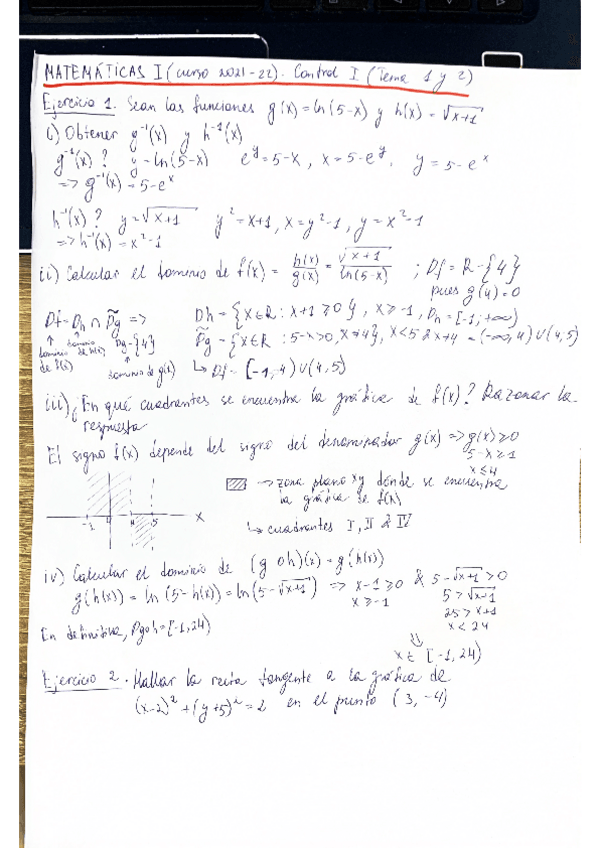 MATEMÁTICAS I (curso 2021-22). Control I (Tema 1 y 2)
Ejercicio 1. Sean las funciones g(x)=ln(5-x) y h(x)=√x+1
i) Obtener g⁻¹(x) y h⁻¹(x)
g⁻¹(x)? y=ln(5-x) e^y=5-x, x=5-e^y. y=5-e^x
=> g⁻¹(x)=5-e^x
h⁻¹(x)? y=√x+1 y²=x+1, x=y²-1, y=x²-1
=> h⁻¹(x)=x²-1
ii) Calcular el dominio de f(x) = h(x)/g(x) = √x+1/ln(5-x) ; Df=R-{4}
pues g(4)=0
Df=Dh ∩ D̃g => Dh={x∈R: x+1≥0}, x≥-1, Dh=[-1,+∞)
D̃g={x∈R: 5-x>0, x≠4}, x<5 & x≠4 = (-∞,4)∪(4,5)
dominio de f(x) dominio de h(x) Dg-{4}
dominio de g(x) ↳ Df=[-1,4)∪(4,5)
iii) ¿En qué cuadrantes se encuentra la gráfica de f(x)? Razonar la
respuesta
El signo f(x) depende del signo del denominador g(x) => g(x)≥0
5-x≥1
x≤4
→ zona plano xy donde se encuentra
la gráfica de f(x)
-1 4 5 X
↳ cuadrantes I, II & IV
iv) Calcular el dominio de (g o h)(x)=g(h(x))
g(h(x))=ln(5-h(x))=ln(5-√x+1) => x-1≥0 & 5-√x+1>0
x≥-1 5>√x+1
25>x+1
x<24
En definitiva, Dgoh=[-1,24)
⇓
x∈[-1,24)
Ejercicio 2. Hallar la recta tangente a la gráfica de
(x-2)²+(y+5)²=2 en el punto (3,-4)